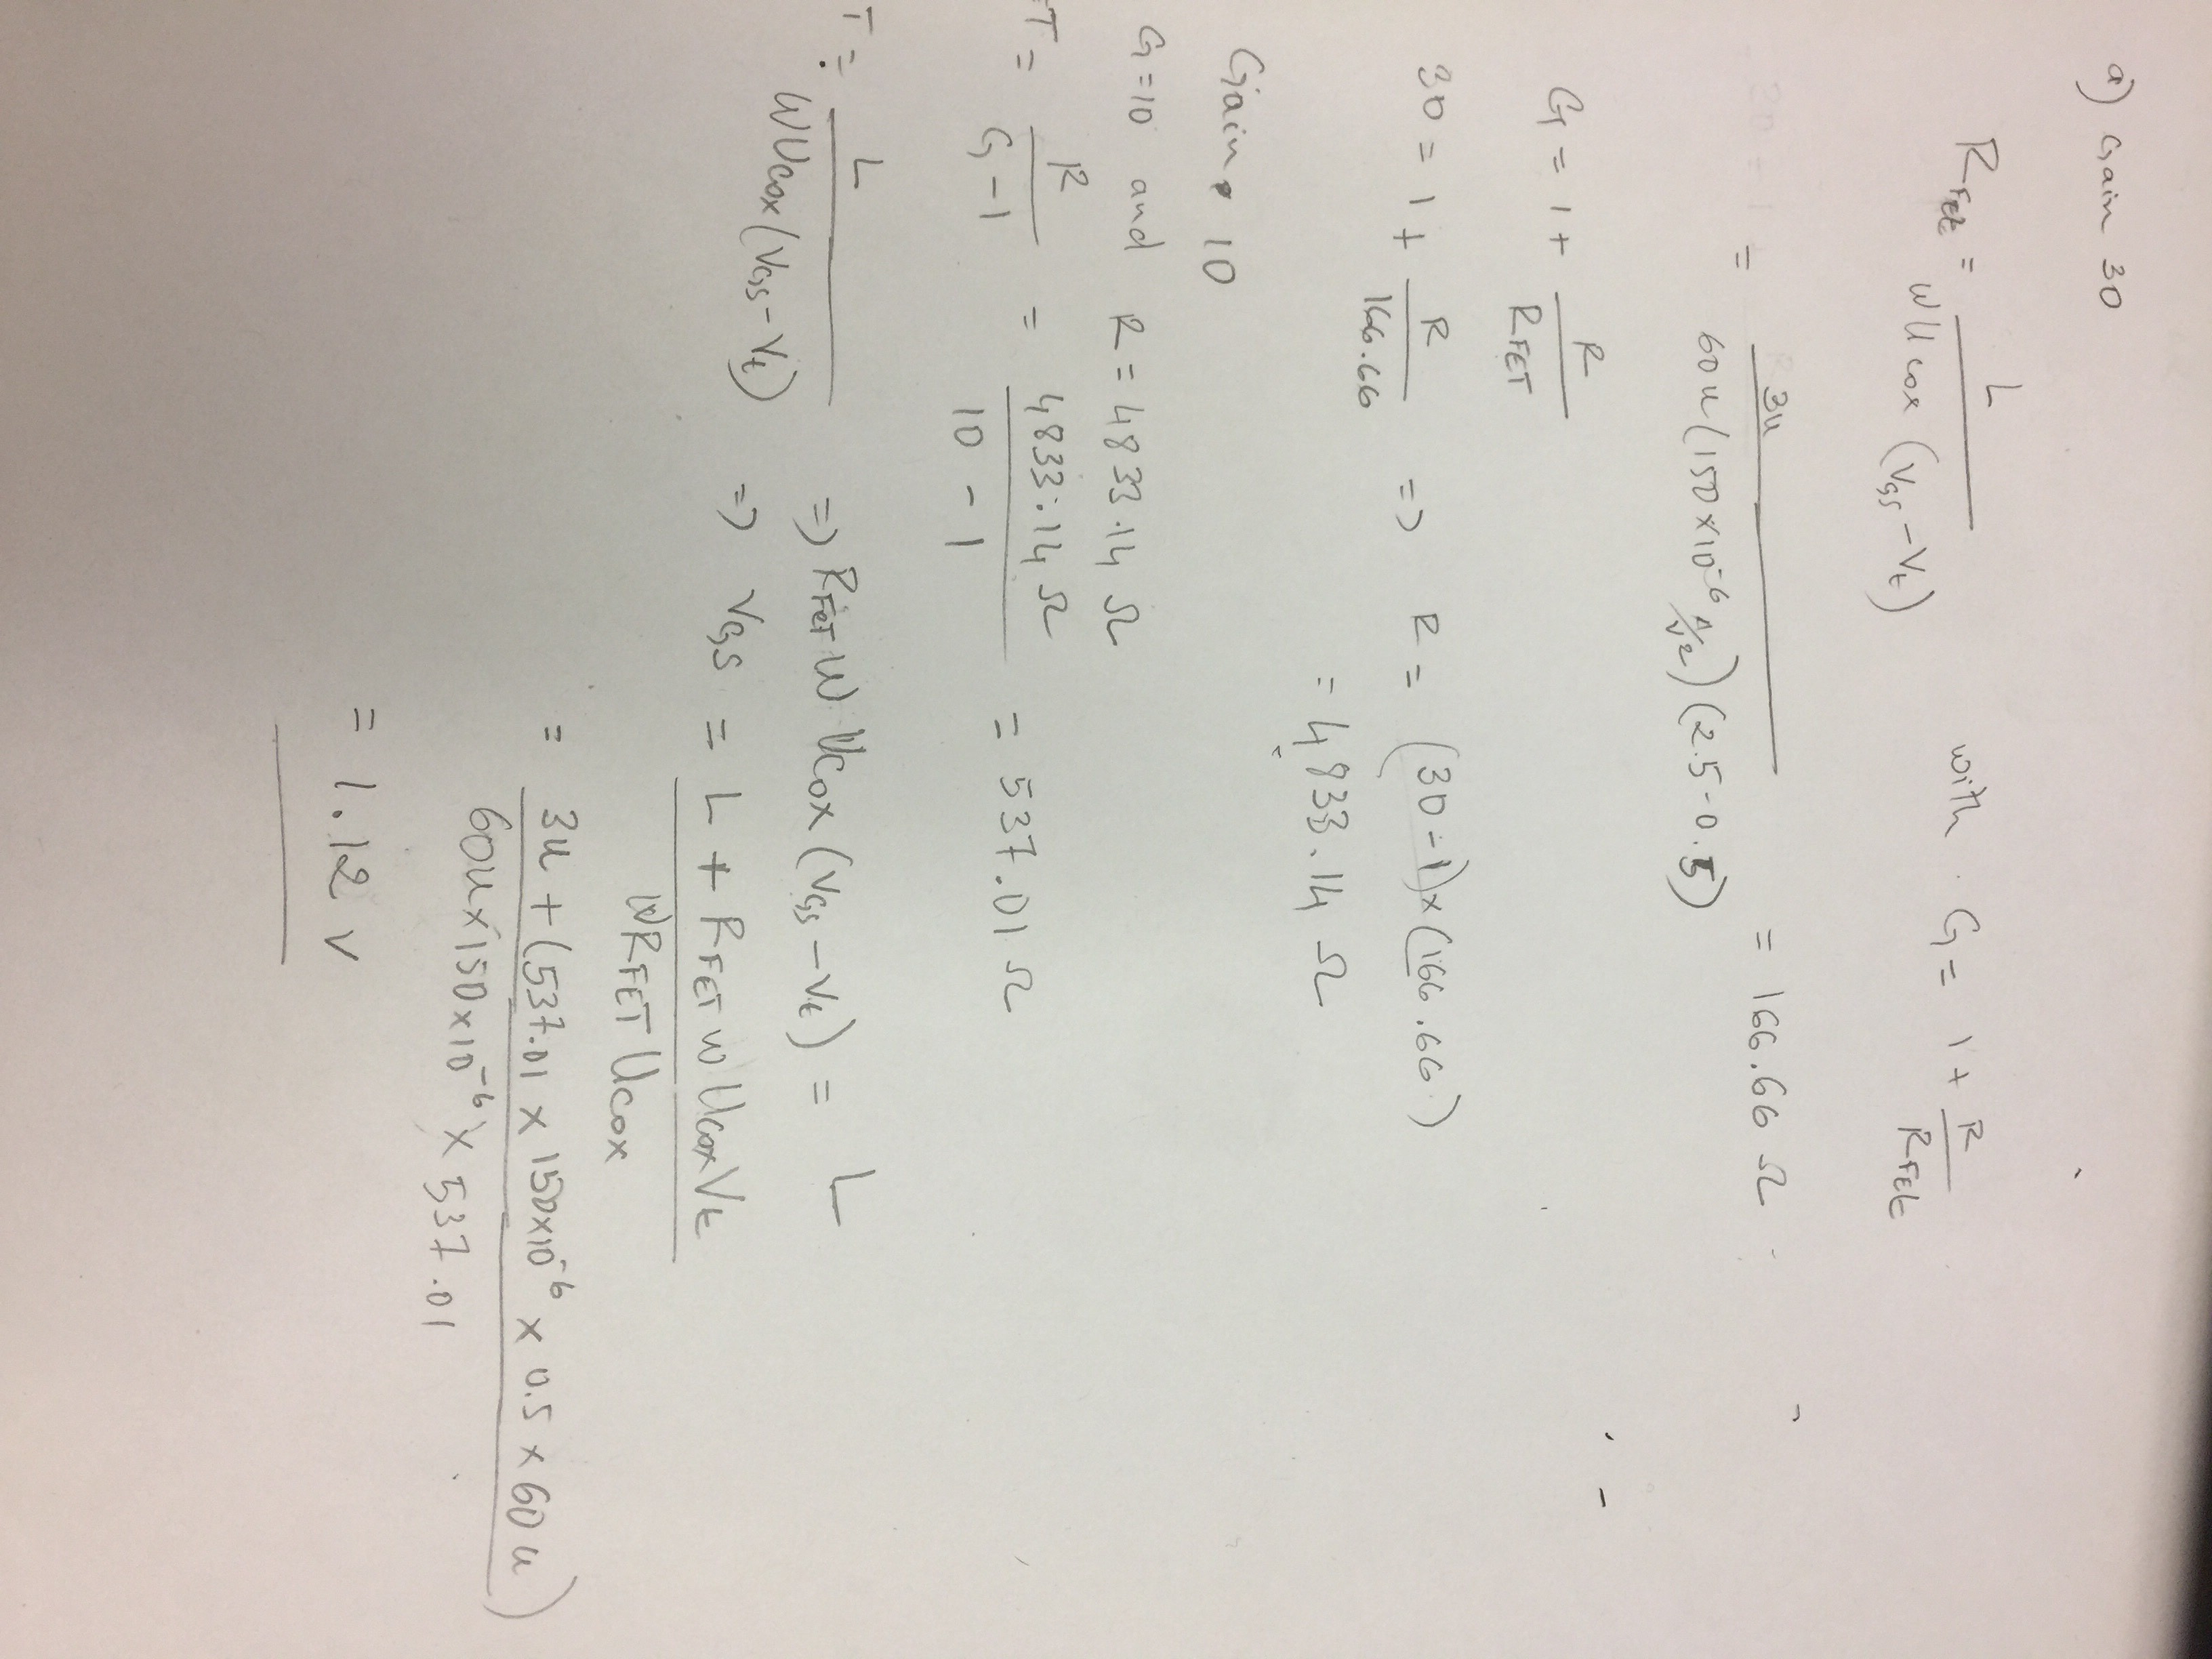 a) Gain 30
RFet = L / WUcox (VGS - Vt) with G = 1 + R / RFet
= 3u / 60u (150 x 10^-6 A/V2) (2.5 - 0.5) = 166.66 Ω
G = 1 + R / RFET
30 = 1 + R / 166.66 => R = (30 - 1) x (166.66)
= 4833.14 Ω
Gain 10
G = 10 and R = 4833.14 Ω
T = R / G - 1 = 4833.14 Ω / 10 - 1 = 537.01 Ω
T = L / WUcox (VGS - Vt) => RFET W Ucox (VGS - Vt) = L
=> VGS = L + RFET W Ucox Vt / W RFET Ucox
= 3u + (537.01 x 150 x 10^-6 x 0.5 x 60u) / 60u x 150 x 10^-6 x 537.01
= 1.12 V